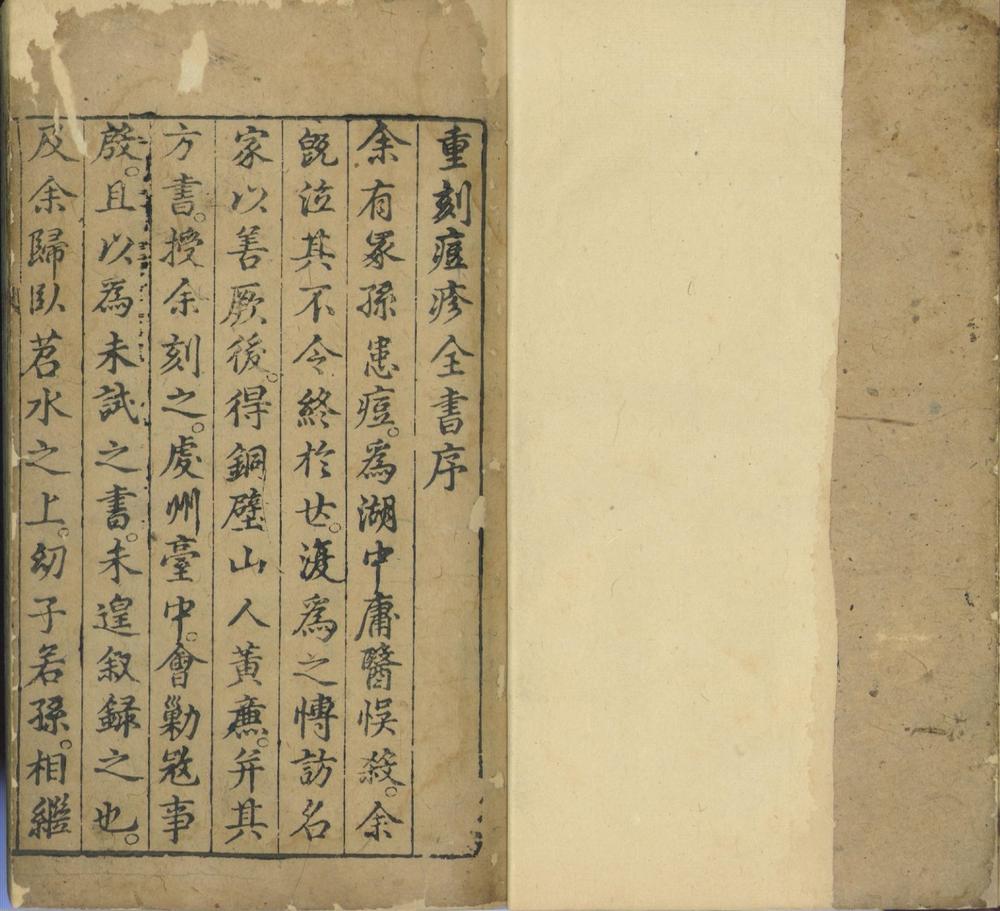 重刻痘疹全書序
余有冢孫患痘。為湖中庸醫悞殺。余
既泣其不令終於世。復為之博訪名
家以善厥後。得銅壁山人黃廉。并其
方書。授余刻之。處州臺中。會勦寇事
發。且以為未試之書。未遑敘錄之也。
及余歸臥苕水之上。幼子若孫。相繼